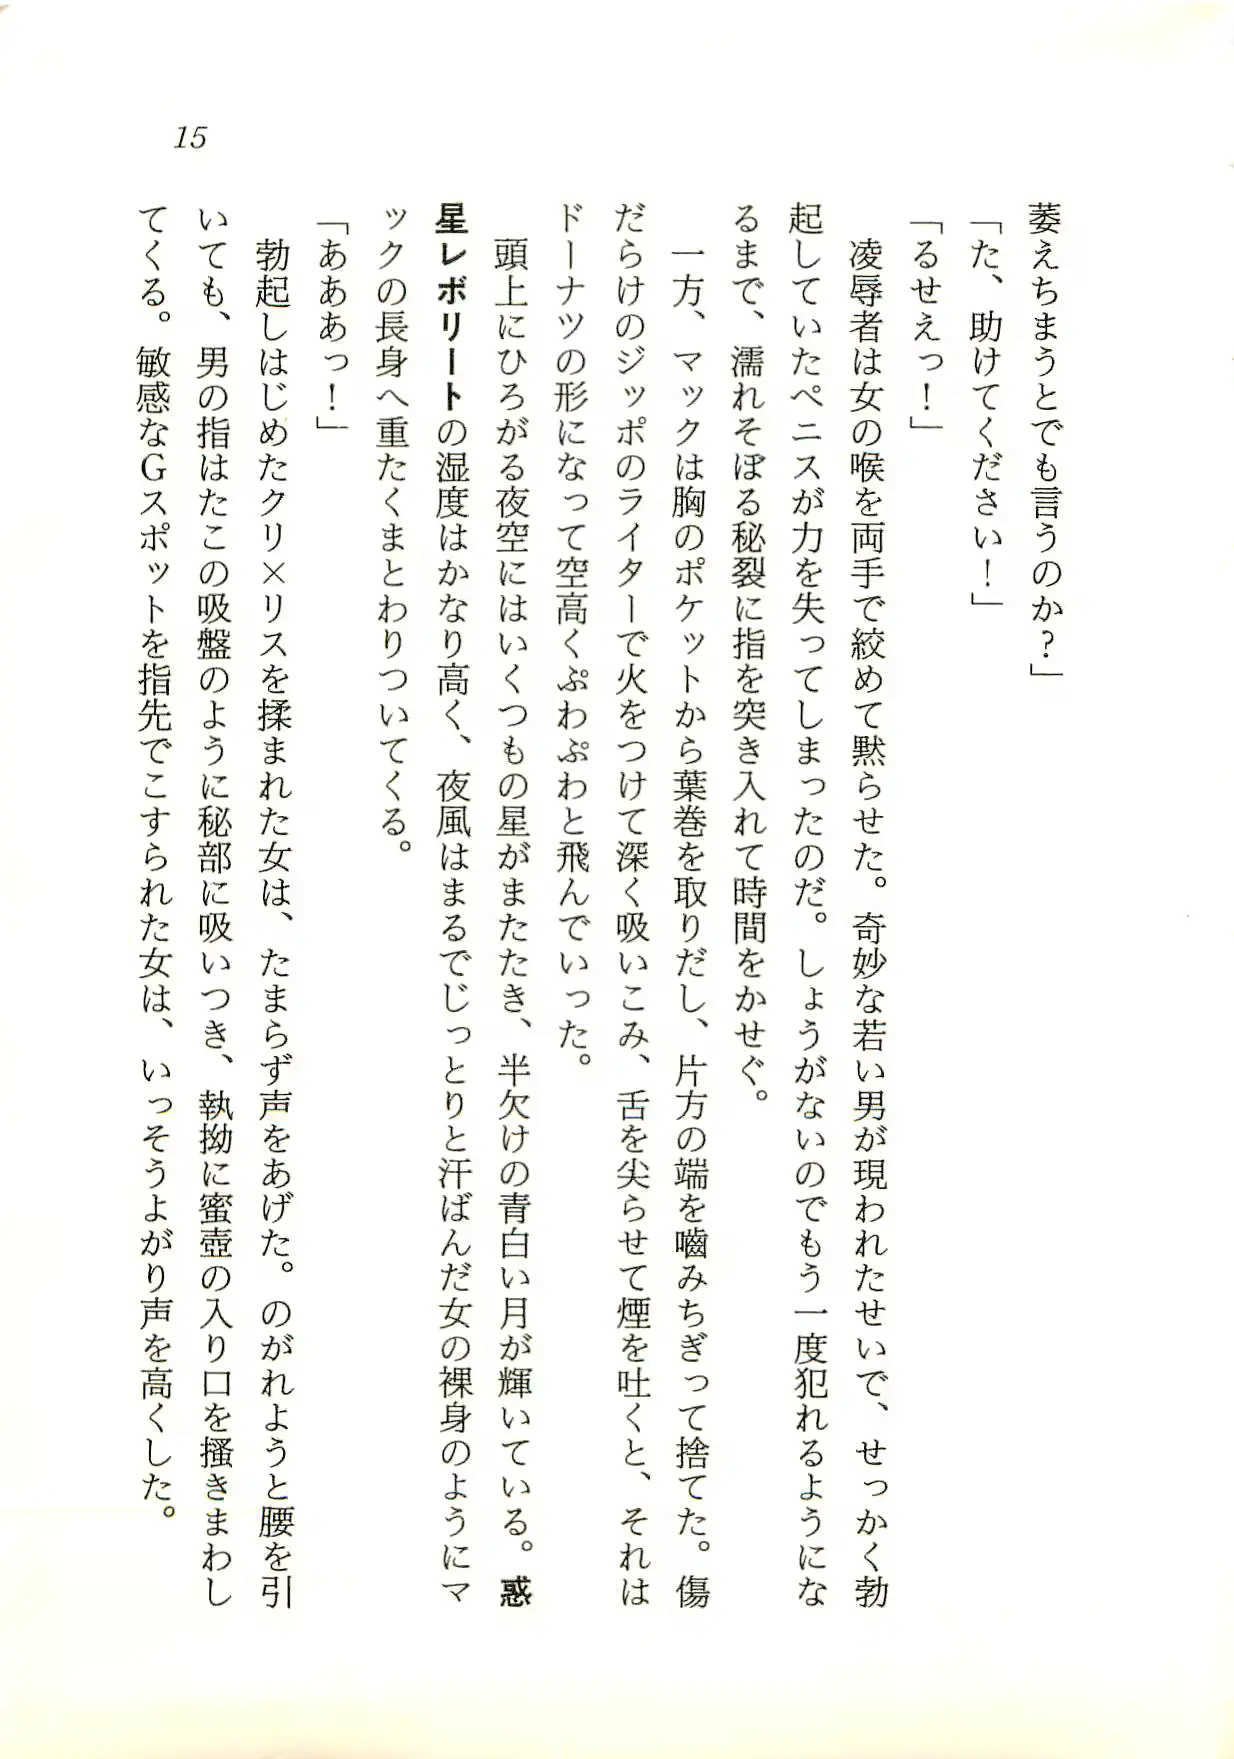 15
萎えちまうとでも言うのか？」
「た、助けてください！」
「るせえっ！」
凌辱者は女の喉を両手で絞めて黙らせた。奇妙な若い男が現われたせいで、せっかく勃
起していたペニスが力を失ってしまったのだ。しょうがないのでもう一度犯れるようにな
るまで、濡れそぼる秘裂に指を突き入れて時間をかせぐ。
一方、マックは胸のポケットから葉巻を取りだし、片方の端を嚙みちぎって捨てた。傷
だらけのジッポのライターで火をつけて深く吸いこみ、舌を尖らせて煙を吐くと、それは
ドーナツの形になって空高くぷわぷわと飛んでいった。
頭上にひろがる夜空にはいくつもの星がまたたき、半欠けの青白い月が輝いている。惑
星レボリートの湿度はかなり高く、夜風はまるでじっとりと汗ばんだ女の裸身のようにマ
ックの長身へ重たくまとわりついてくる。
「あああっ！」
勃起しはじめたクリ×リスを揉まれた女は、たまらず声をあげた。のがれようと腰を引
いても、男の指はたこの吸盤のように秘部に吸いつき、執拗に蜜壺の入り口を搔きまわし
てくる。敏感なGスポットを指先でこすられた女は、いっそうよがり声を高くした。